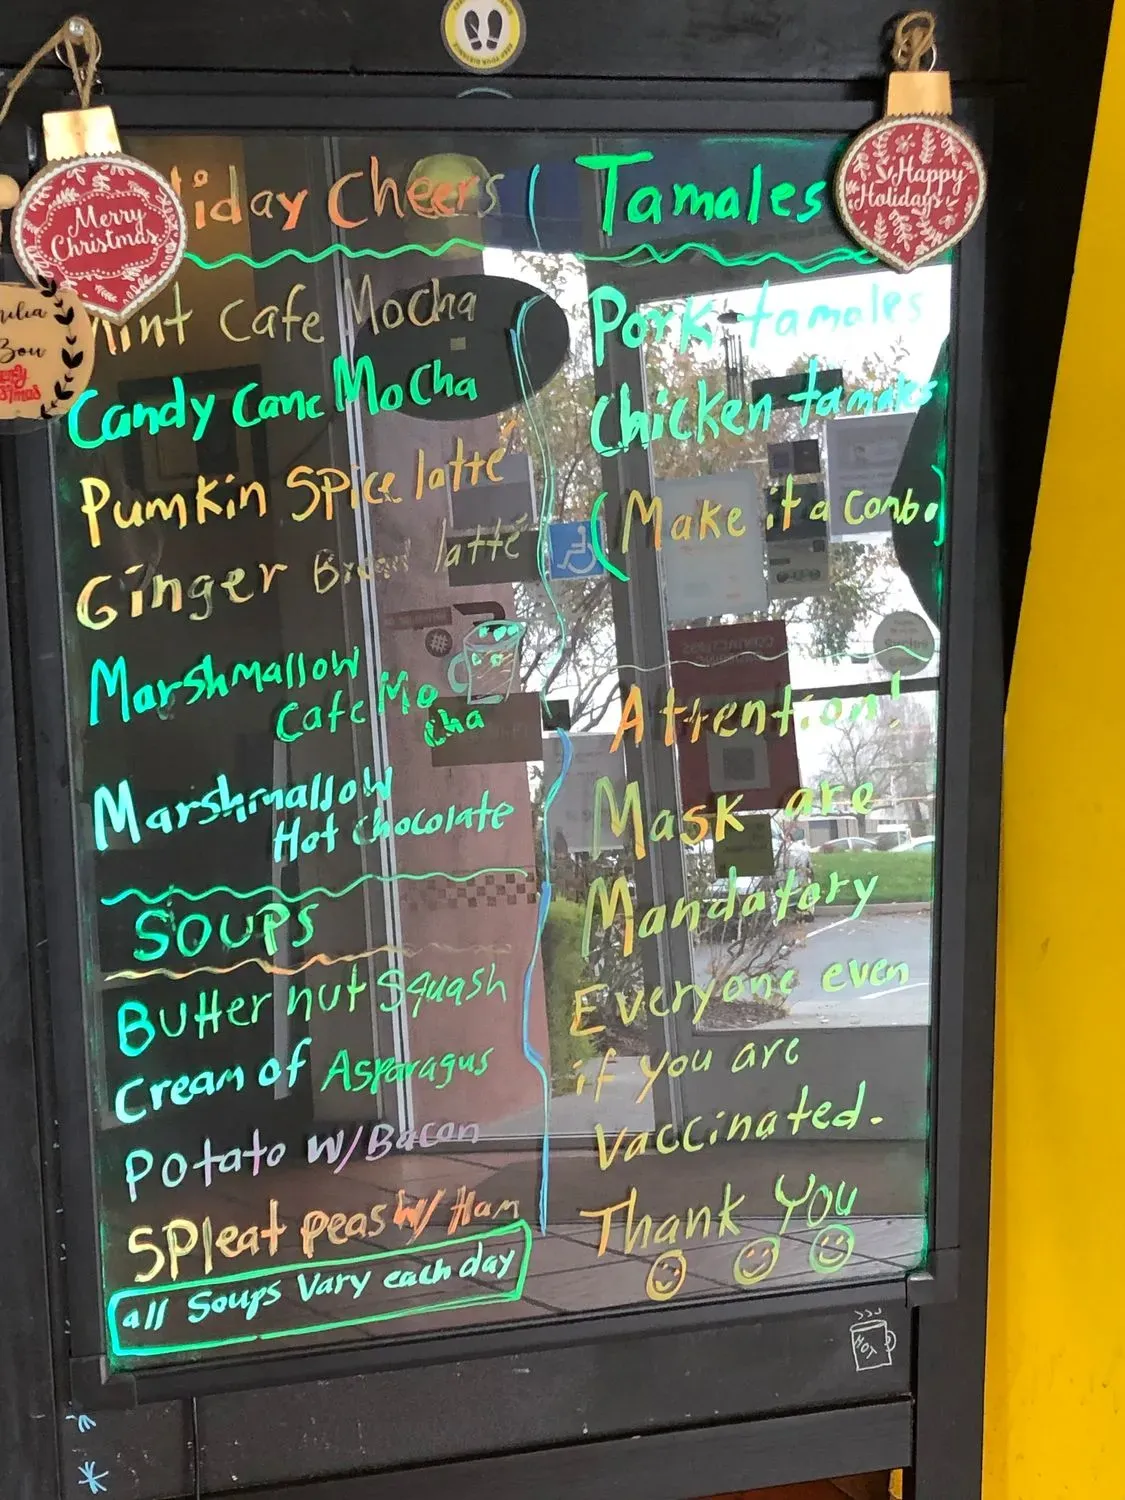 KEEP YOUR DISTANCE
Merry
Christmas
Happy
Holidays
iday Cheers
Mint Cafe Mocha
Candy Cane Mocha
Pumkin Spice latte
Ginger Bread latte
Marshmallow
Cafe Mo
cha
Marshmallow
Hot Chocolate
SOUPS
Butter nut Squash
Cream of Asparagus
Potato W/ Bacon
SPleat Peas W/ Ham
all Soups Vary each day
Tamales
Pork tamales
Chicken tamales
(Make it a Combo)
Attention!
Mask are
Mandatory
Everyone even
if you are
Vaccinated.
Thank You